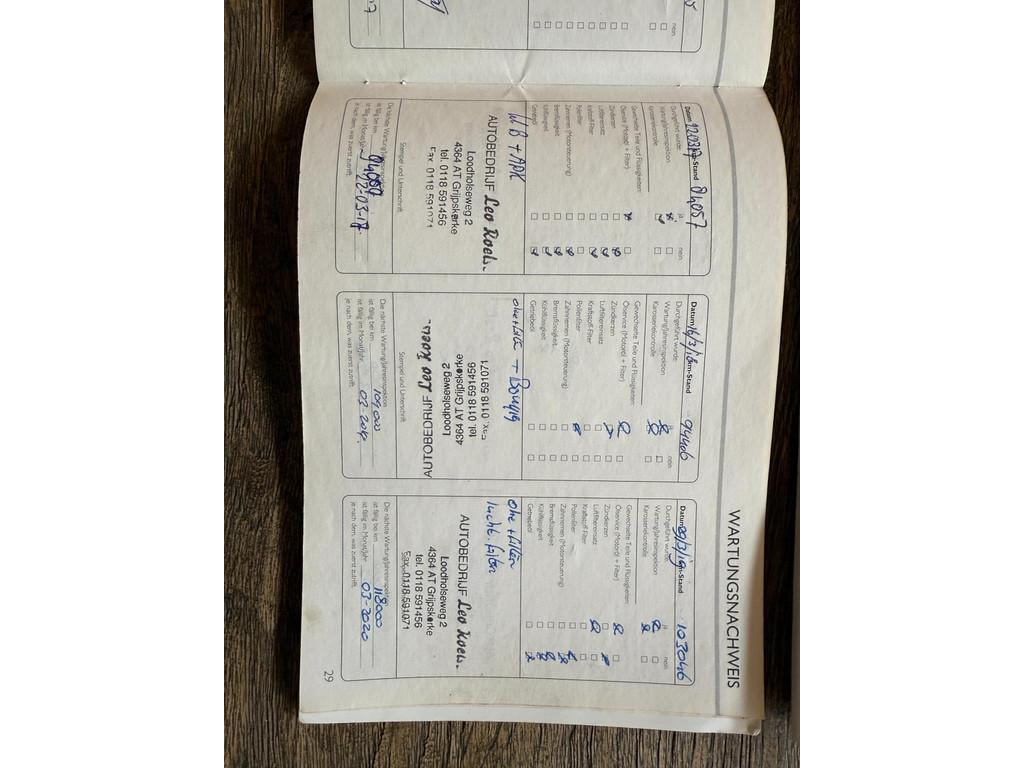 WARTUNGSNACHWEIS
Datum 220317 km-Stand 84057
Durchgeführt wurde: ja nein
Wartung/Jahresinspektion
Karosseriekontrolle
Gewechselte Teile und Flüssigkeiten:
Ölservice (Motoröl + Filter)
Zündkerzen
Luftfiltereinsatz
Kraftstoff-Filter
Pollenfilter
Zahnriemen (Motorsteuerung)
Bremsflüssigkeit
Kühlflüssigkeit
Getriebeöl
+ APK
AUTOBEDRIJF Leo Roels.
Loodholseweg 2
4364 AT Grijpskerke
tel. 0118 591456
Fax. 0118 591071
Stempel und Unterschrift
Die nächste Wartung/Jahresinspektion
ist fällig bei km
ist fällig im Monat/Jahr 22-03-17
je nach dem, was zuerst zutrifft.
Datum 16/3/18 km-Stand 94406
Durchgeführt wurde: ja nein
Wartung/Jahresinspektion
Karosseriekontrolle
Gewechselte Teile und Flüssigkeiten:
Ölservice (Motoröl + Filter)
Zündkerzen
Luftfiltereinsatz
Kraftstoff-Filter
Pollenfilter
Zahnriemen (Motorsteuerung)
Bremsflüssigkeit
Kühlflüssigkeit
Getriebeöl
olie + filter + Bougig
AUTOBEDRIJF Leo Roels.
Loodholseweg 2
4364 AT Grijpskerke
tel. 0118 591456
Fax. 0118 591071
Stempel und Unterschrift
Die nächste Wartung/Jahresinspektion
ist fällig bei km 109.000
ist fällig im Monat/Jahr 03-2019.
je nach dem, was zuerst zutrifft.
Datum 29/7/19 km-Stand 103046
Durchgeführt wurde: ja nein
Wartung/Jahresinspektion
Karosseriekontrolle
Gewechselte Teile und Flüssigkeiten:
Ölservice (Motoröl + Filter)
Zündkerzen
Luftfiltereinsatz
Kraftstoff-Filter
Pollenfilter
Zahnriemen (Motorsteuerung)
Bremsflüssigkeit
Kühlflüssigkeit
Getriebeöl
olie + filter
lucht. filter
AUTOBEDRIJF Leo Roels.
Loodholseweg 2
4364 AT Grijpskerke
tel. 0118 591456
Fax. 0118 591071
Stempel und Unterschrift
Die nächste Wartung/Jahresinspektion
ist fällig bei km 118000
ist fällig im Monat/Jahr 03-2020
je nach dem, was zuerst zutrifft.
29
nein